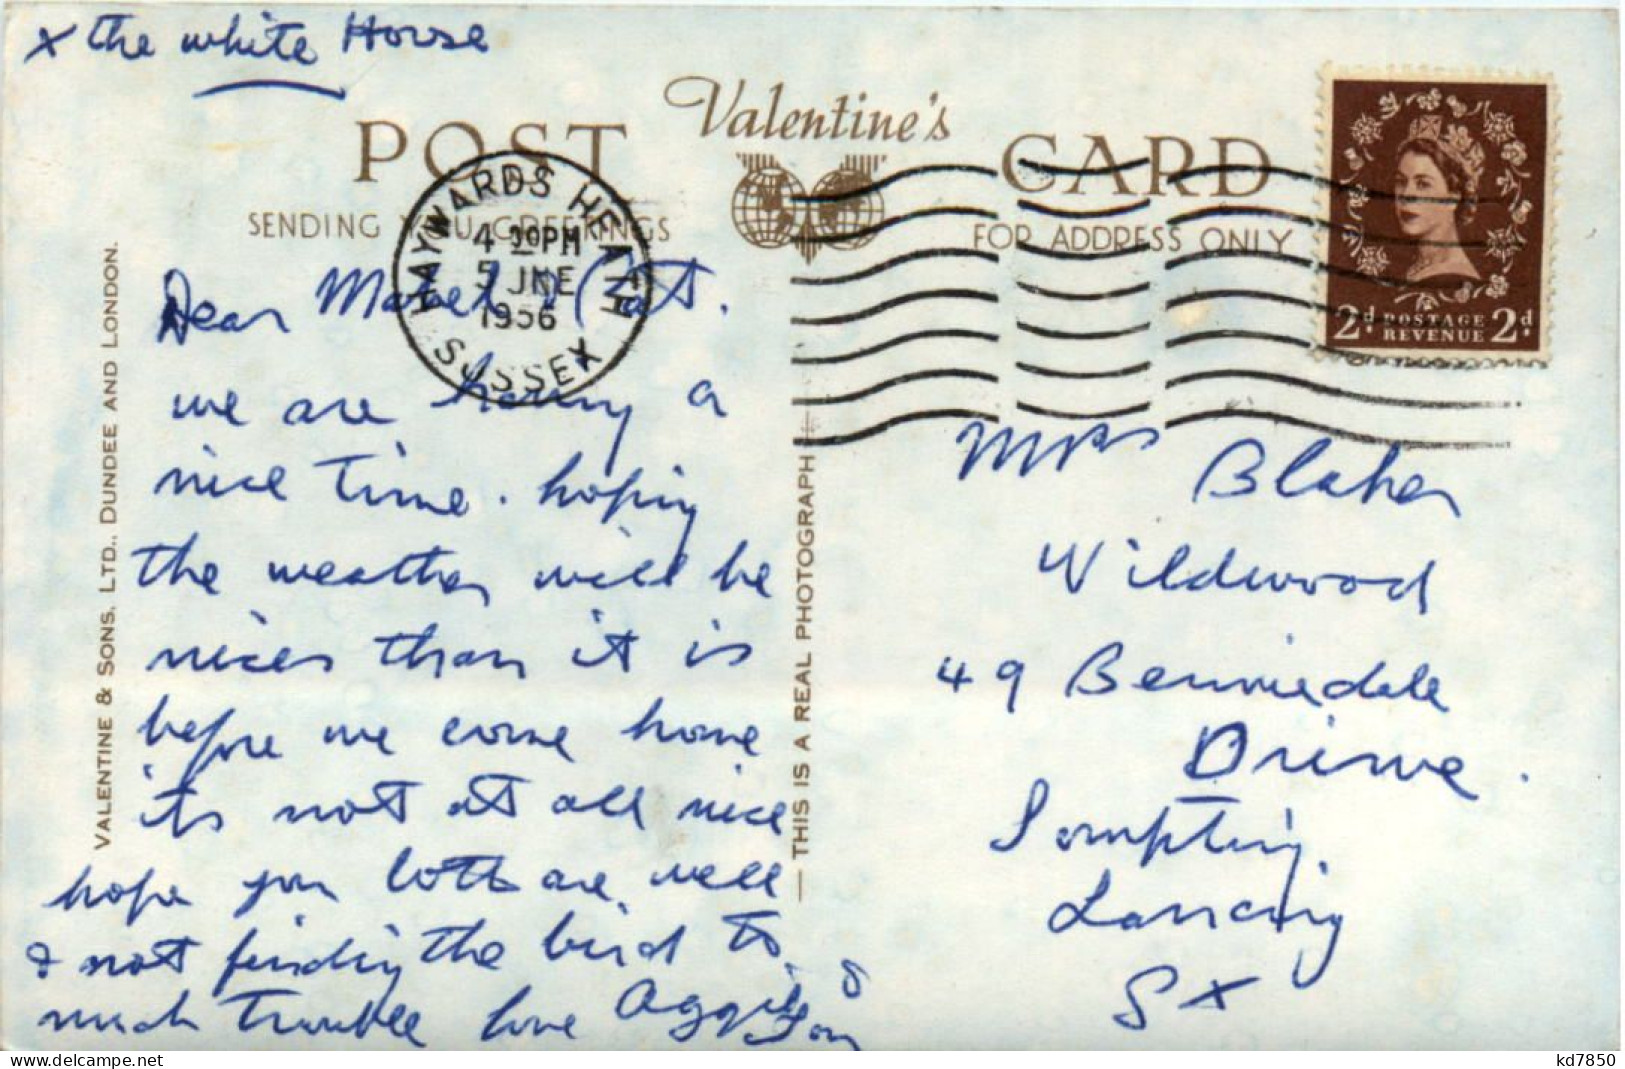 x the white House
Valentine's
POST CARD
SENDING YOU GREETINGS
FOR ADDRESS ONLY
HAYWARDS HEATH
4 30 PM
5 JNE
1956
SUSSEX
2d POSTAGE REVENUE 2d
VALENTINE & SONS, LTD., DUNDEE AND LONDON.
THIS IS A REAL PHOTOGRAPH
Dear Mabel
we are having a
nice time. hoping
the weather will be
nicer than it is
before we come home
its not at all nice
hope you both are well
& not finding the bird to
much trouble love Aggie &
Mrs Blaker
Wildwood
49
Drive.
Sompting.
Lancing
Sx
kd7850